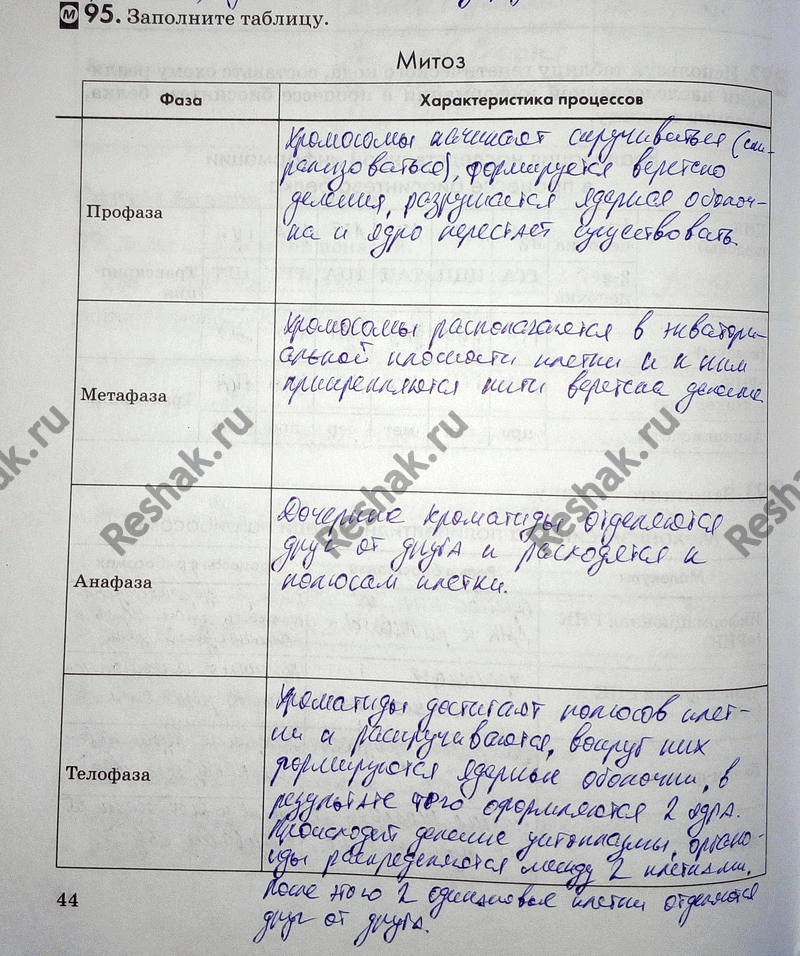 М 95. Заполните таблицу.
Митоз
Фаза
Характеристика процессов
Профаза
Хромосомы начинают скручиваться (спи-
рализоваться), формируется веретено
деления, разрушается ядерная оболоч-
ка и ядро перестает существовать
Метафаза
Хромосомы располагаются в экватори-
альной плоскости клетки и к ним
прикрепляются нити веретена деления
Анафаза
Дочерние хроматиды отделяются
друг от друга и расходятся к
полюсам клетки.
Телофаза
Хроматиды достигают полюсов клет-
ки и раскручиваются, вокруг них
формируются ядерные оболочки, в
результате того оформляются 2 ядра.
Происходит деление цитоплазмы, органо-
иды распределяются между 2 клетками.
После этого 2 одинаковые клетки отделяются
друг от друга.
44
Reshak.ru
Reshak.ru
Reshak.ru